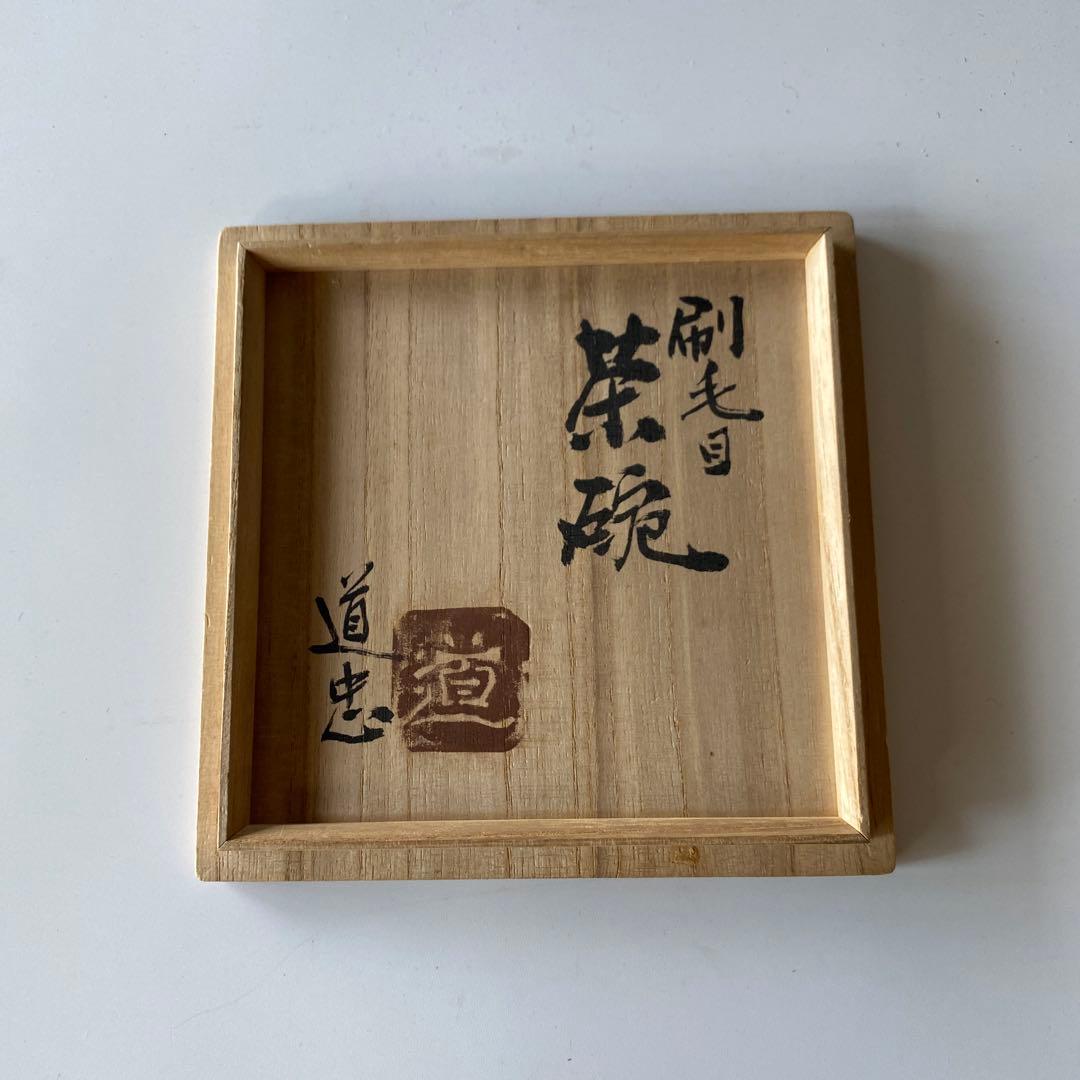 刷毛目
茶碗
道忠
道